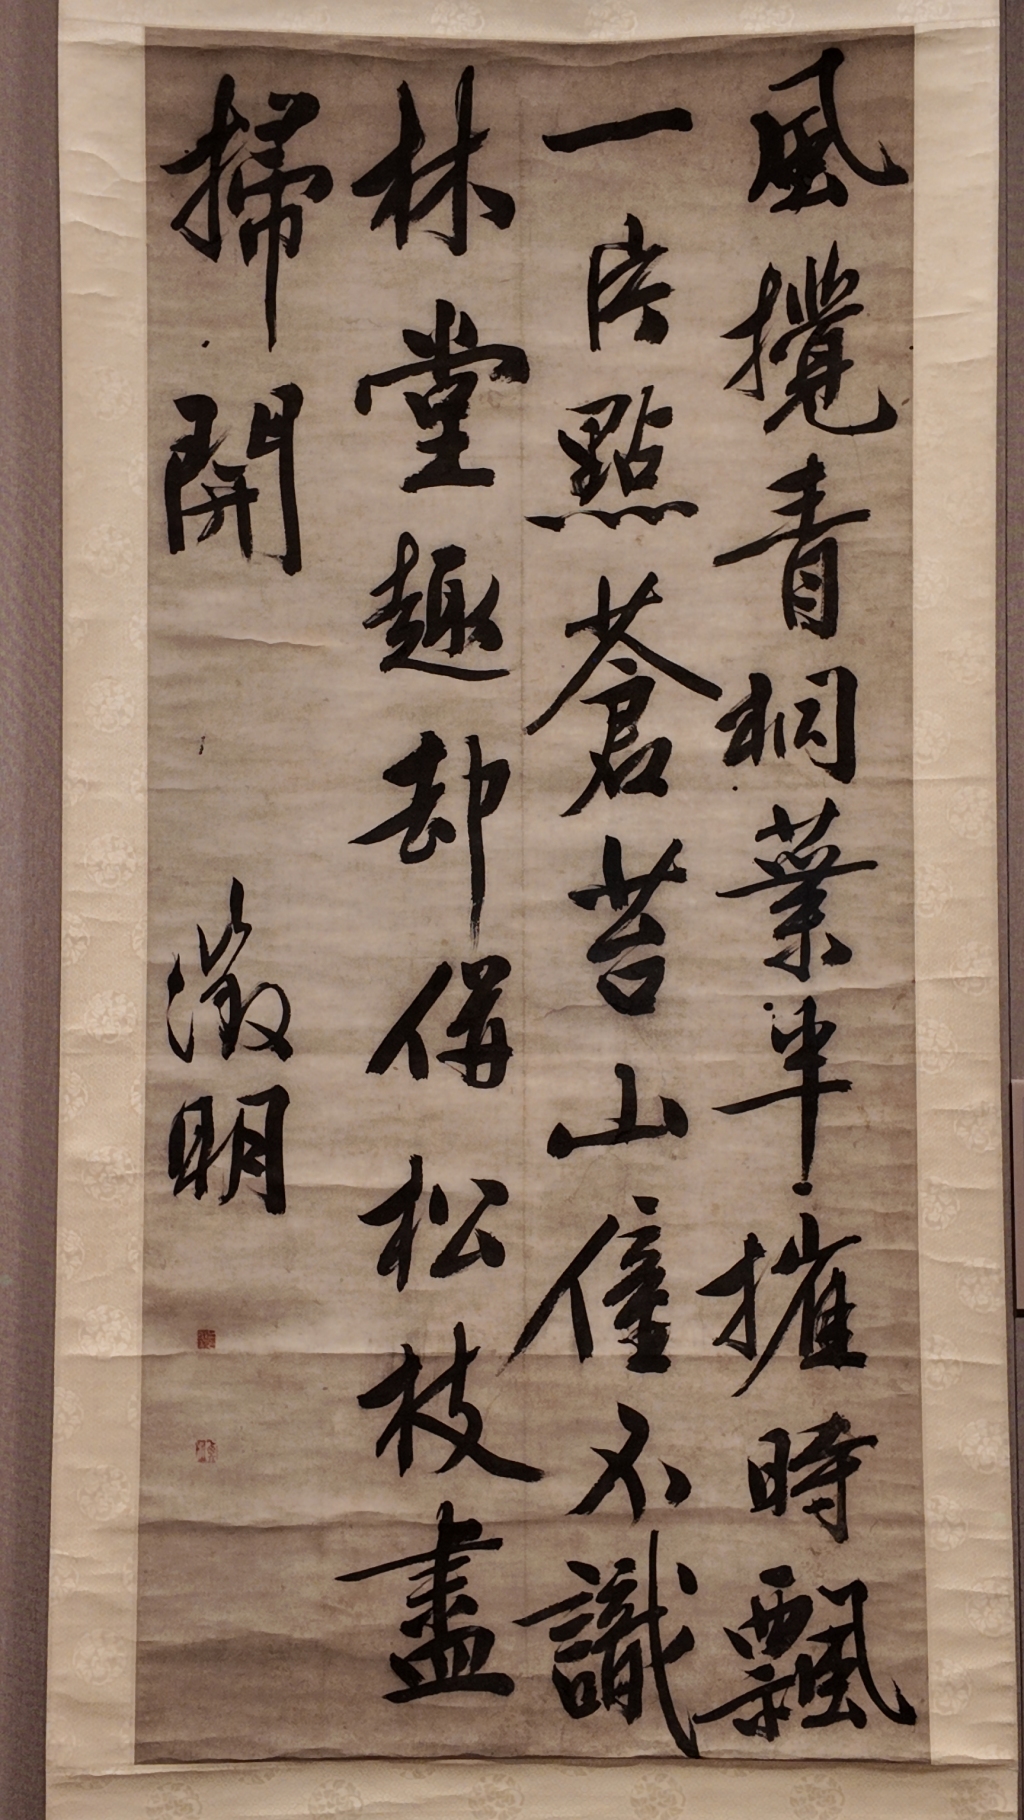 風攪青桐葉半摧時飄
一片點蒼苔山僮不識
林堂趣却併松枝盡
掃開
徵明